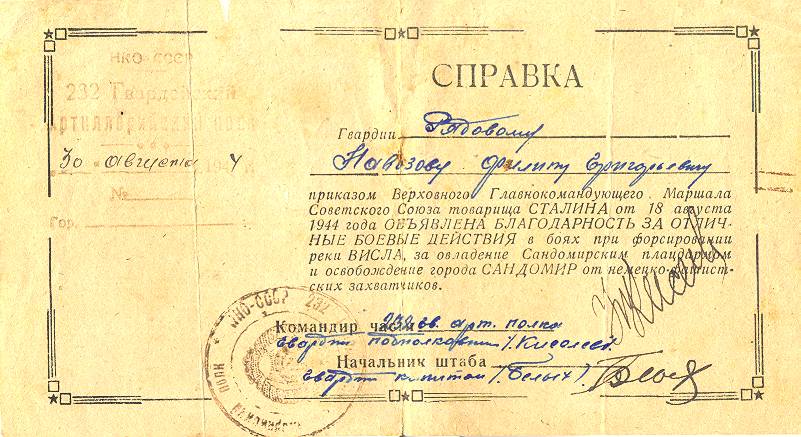 НКО СССР
232 Гвардейский
Артиллерийский полк
30 августа 194 4
№
Гор.
СПРАВКА
Гвардии Рядовому
Навозову Филипу Григорьевичу
приказом Верховного Главнокомандующего Маршала
Советского Союза товарища СТАЛИНА от 18 августа
1944 года ОБЪЯВЛЕНА БЛАГОДАРНОСТЬ ЗА ОТЛИЧ-
НЫЕ БОЕВЫЕ ДЕЙСТВИЯ в боях при форсировании
реки ВИСЛА, за овладение Сандомирским плацдармом
и освобождение города САНДОМИР от немецко-фашист-
ских захватчиков.
Командир части 232 гв. арт. полка
гвардии подполковник
Начальник штаба
гвардии капитан /Белых/
НКО-СССР 232
полк